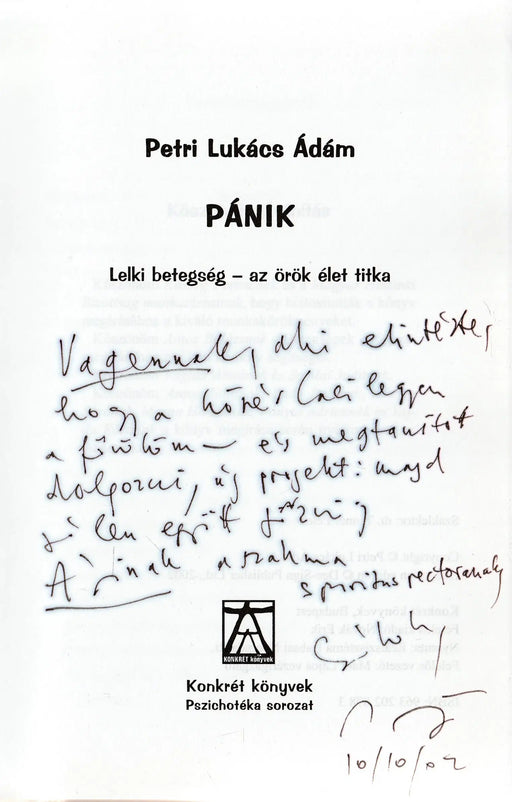 Petri Lukács Ádám
PÁNIK
Lelki betegség – az örök élet titka
Vagennak, aki elintézte,
hogy a
a főnököm – és megtanított
dolgozni, új projekt: majd
jólen együtt főzni,
Áginak a szakma
spiritus rectorának
KONKRÉT könyvek
Konkrét könyvek
Pszichotéka sorozat
10/10/02